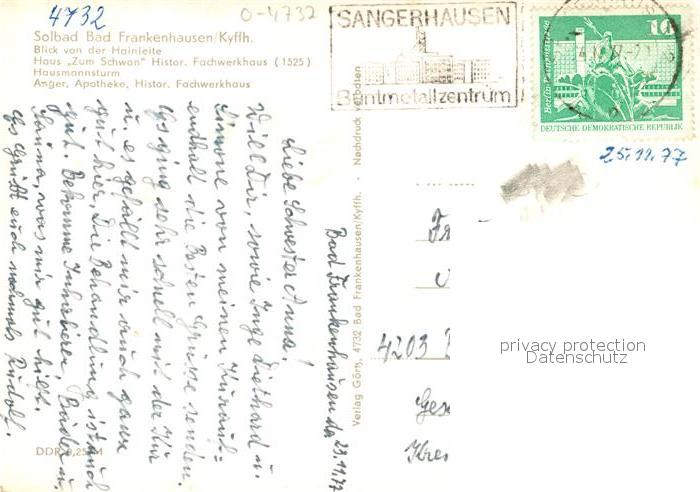 4732
0-4732
Solbad Bad Frankenhausen/Kyffh.
Blick von der Hainleite
Haus „Zum Schwan“ Histor. Fachwerkhaus (1525)
Hausmannsturm
Anger, Apotheke, Histor. Fachwerkhaus
SANGERHAUSEN
Buntmetallzentrum
10
DEUTSCHE DEMOKRATISCHE REPUBLIK
25.11.77
Bad Frankenhausen, da 23.11.77
Liebe Schwester Anna!
Will Dir, sowie Inge Diethard u.
Simone von meinen Kurauf=
enthalt die Besten Grüsse senden.
Es ging sehr schnell mit der Kur
u. es gefällt mir auch ganz
gut hier. Die Behandlung ist auch
gut. Bekomme Inhalieren, Bäder u.
Sauna, was mir gut hilft.
Es Grüßt euch nochmals Rudolf.
DDR 0,25 M
Verlag Görtz, 4732 Bad Frankenhausen/Kyffh. · Nachdruck verboten
Fr
4203
Ges
Krei
privacy protection
Datenschutz